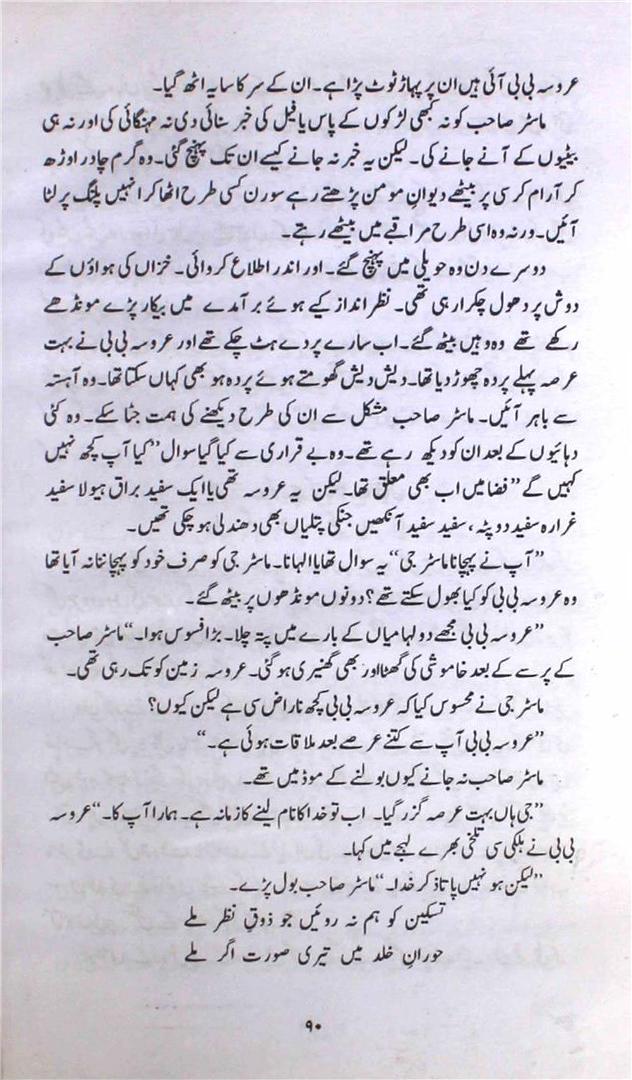 عروسہ بی بی آئی ہیں ان پر پہاڑ ٹوٹ پڑا ہے۔ ان کے سر کا سایہ اٹھ گیا۔
ماسٹر صاحب کو نہ کبھی لڑکوں کے پاس یا فیل کی خبر سنائی دی نہ مہنگائی کی اور نہ ہی
بیٹیوں کے آنے جانے کی۔ لیکن یہ خبر نہ جانے کیسے ان تک پہنچ گئی۔ وہ گرم چادر اوڑھ
کر آرام کرسی پر بیٹھے دیوانِ مومن پڑھتے رہے سورن کسی طرح اٹھا کر انہیں پلنگ پر لٹا
آئیں۔ ورنہ وہ اسی طرح مراقبے میں بیٹھے رہتے۔
دوسرے دن وہ حویلی میں پہنچ گئے۔ اور اندر اطلاع کروائی۔ خزاں کی ہواؤں کے
دوش پر دھول چکرا رہی تھی۔ نظر انداز کیے ہوئے برآمدے میں بیکار پڑے مونڈھے
رکھے تھے وہ وہیں بیٹھ گئے۔ اب سارے پردے ہٹ چکے تھے اور عروسہ بی بی نے بہت
عرصہ پہلے پردہ چھوڑ دیا تھا۔ دیش دیش گھومتے ہوئے پردہ ہو بھی کہاں سکتا تھا۔ وہ آہستہ
سے باہر آئیں۔ ماسٹر صاحب مشکل سے ان کی طرح دیکھنے کی ہمت جٹا سکے۔ وہ کئی
دہائیوں کے بعد ان کو دیکھ رہے تھے۔ وہ بے قراری سے کیا گیا سوال ”کیا آپ کچھ نہیں
کہیں گے“ فضا میں اب بھی معلق تھا۔ لیکن یہ عروسہ تھی یا ایک سفید براق ہیولا سفید
غرارہ سفید دوپٹہ، سفید سفید آنکھیں جنکی پتلیاں بھی دھندلی ہو چکی تھیں۔
”آپ نے پہچانا ماسٹر جی“ یہ سوال تھا یا الہانا۔ ماسٹر جی کو صرف خود کو پہچاننا نہ آیا تھا
وہ عروسہ بی بی کو کیا بھول سکتے تھے؟ دونوں مونڈھوں پر بیٹھ گئے۔
”عروسہ بی بی مجھے دولہا میاں کے بارے میں پتہ چلا۔ بڑا افسوس ہوا۔“ ماسٹر صاحب
کے پرسے کے بعد خاموشی کی گھٹا اور بھی گھنیری ہو گئی۔ عروسہ زمین کو تک رہی تھی۔
ماسٹر جی نے محسوس کیا کہ عروسہ بی بی کچھ ناراض سی ہے لیکن کیوں؟
”عروسہ بی بی آپ سے کتنے عرصے بعد ملاقات ہوئی ہے۔“
ماسٹر صاحب نہ جانے کیوں بولنے کے موڈ میں تھے۔
”جی ہاں بہت عرصہ گزر گیا۔ اب تو خدا کا نام لینے کا زمانہ ہے۔ ہمارا آپ کا۔“ عروسہ
بی بی نے ہلکی سی تلخی بھرے لہجے میں کہا۔
”لیکن ہو نہیں پاتا ذکر خدا۔“ ماسٹر صاحب بول پڑے۔
تسکین کو ہم نہ روئیں جو ذوقِ نظر ملے
حورانِ خلد میں تیری صورت اگر ملے
۹۰